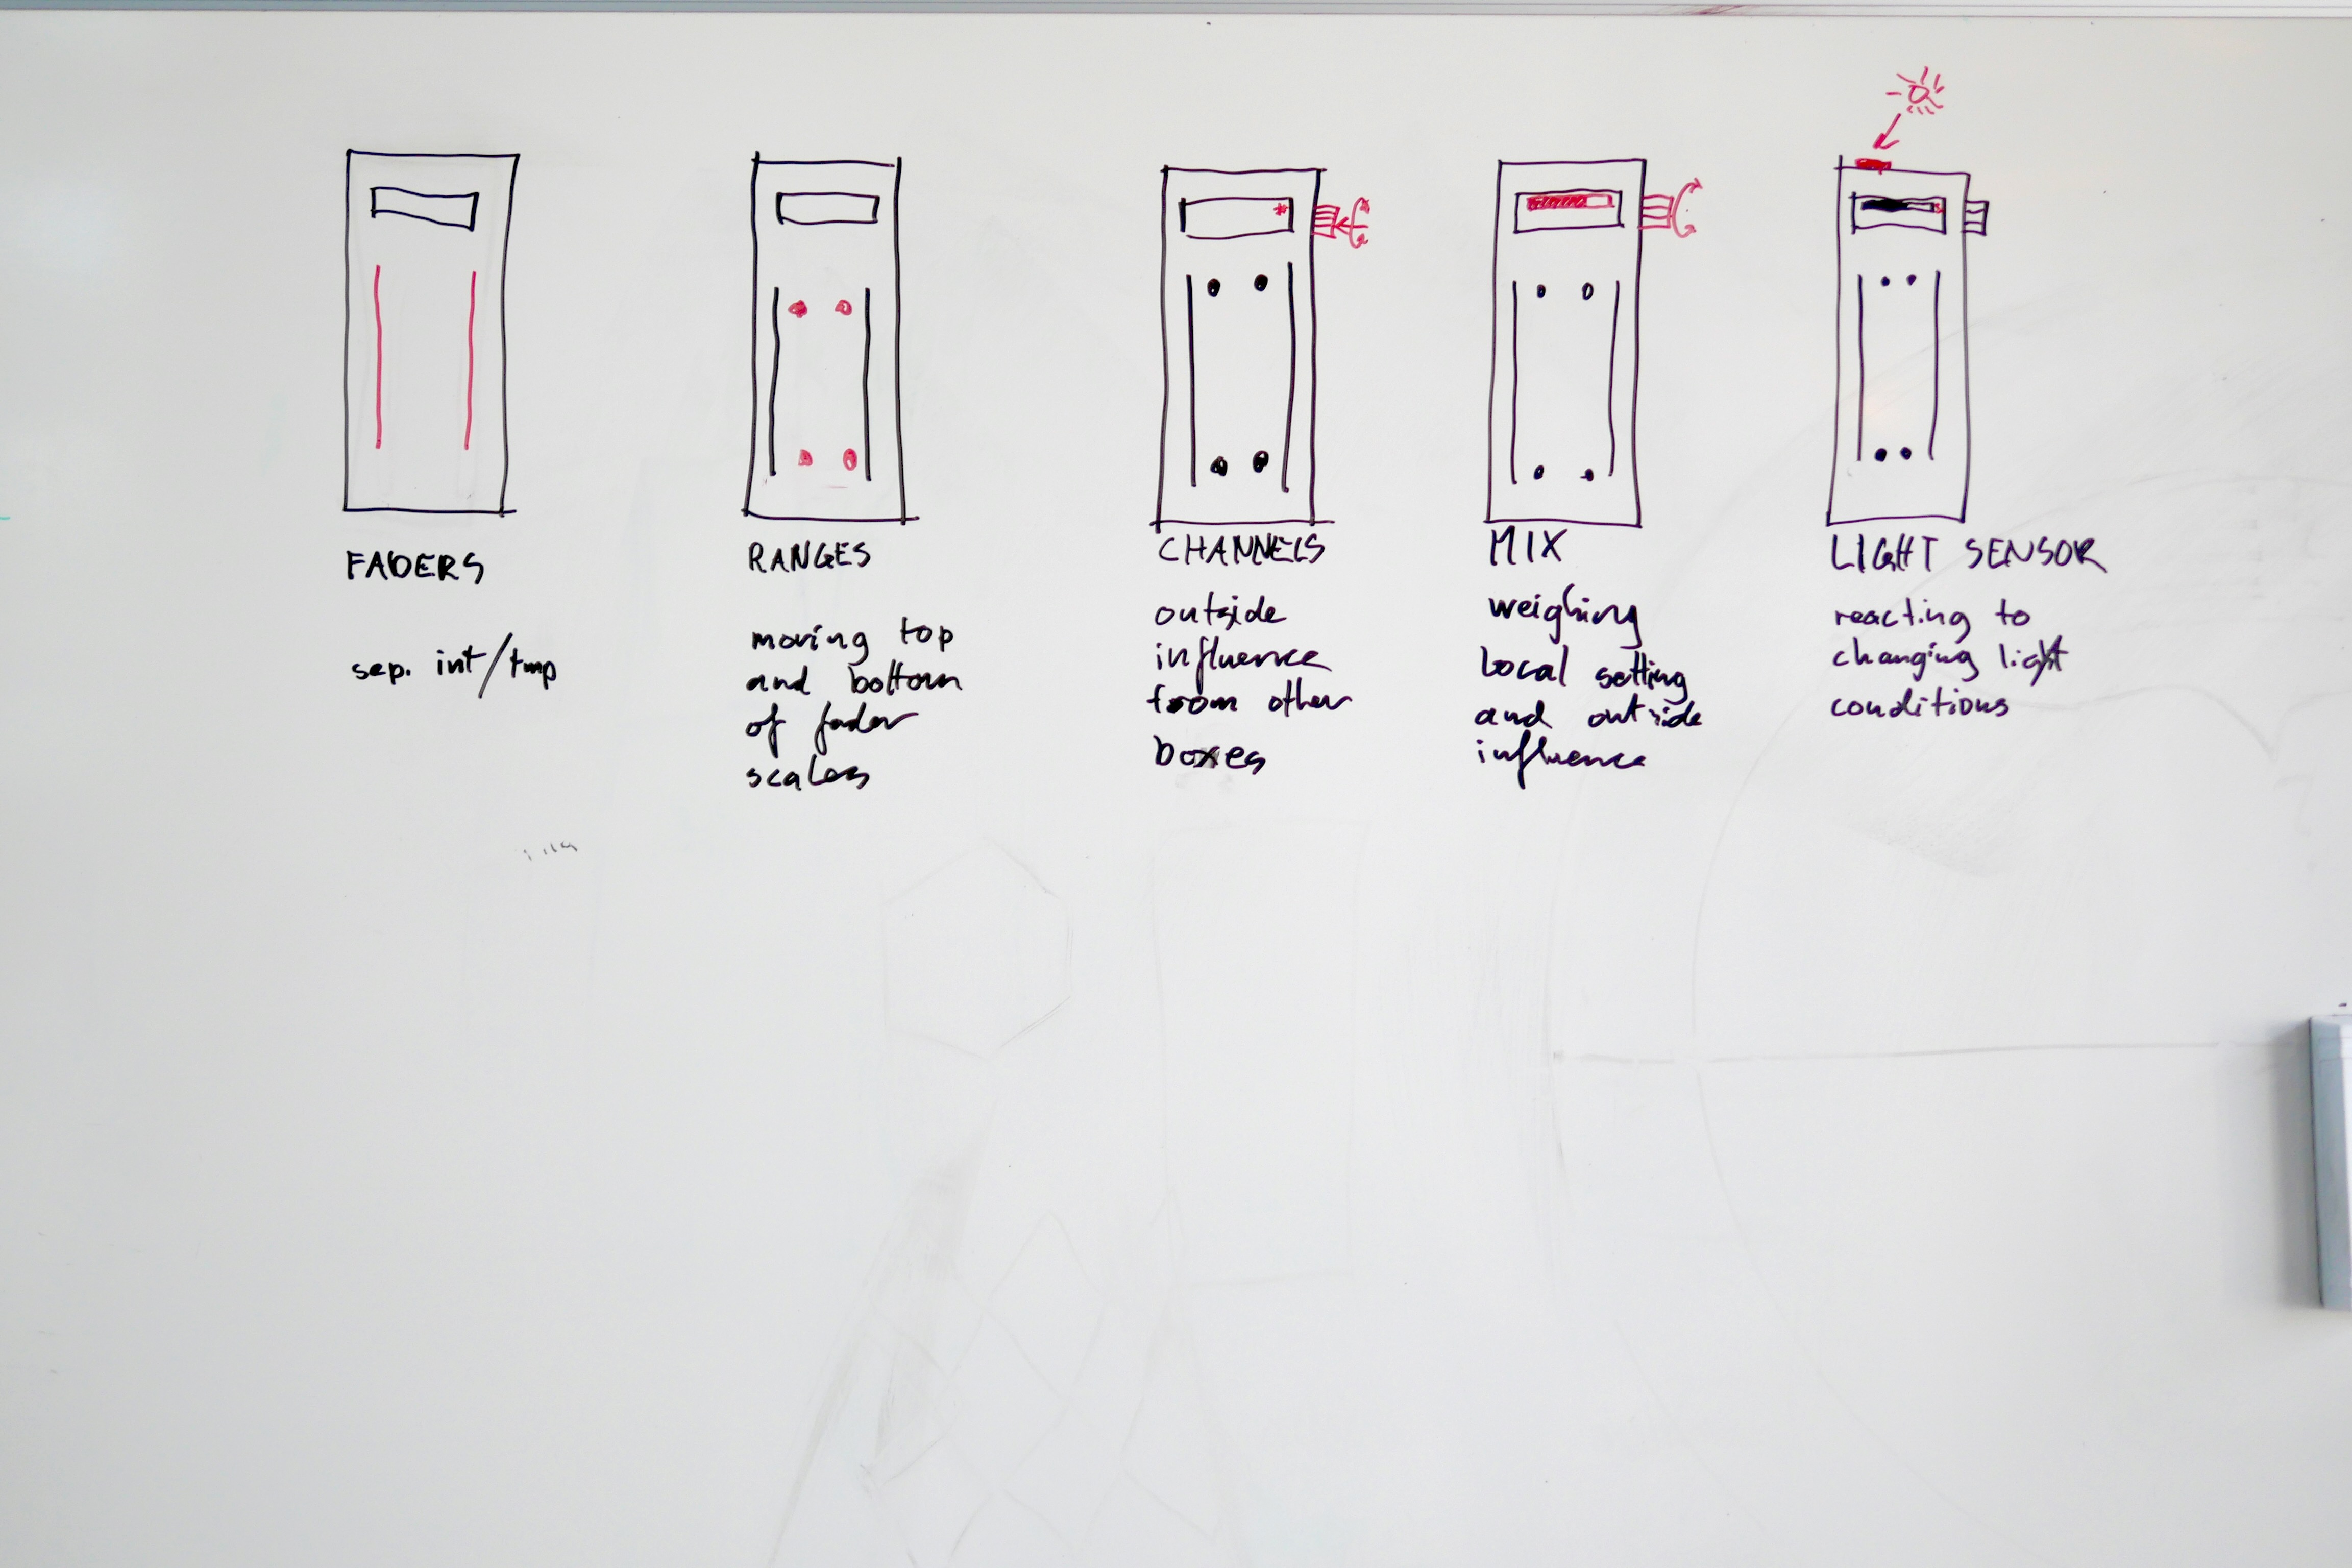 FADERS
sep. int/tmp
RANGES
moving top
and bottom
of fader
scales
CHANNELS
outside
influence
from other
boxes
MIX
weighing
local setting
and outside
influence
LIGHT SENSOR
reacting to
changing light
conditions